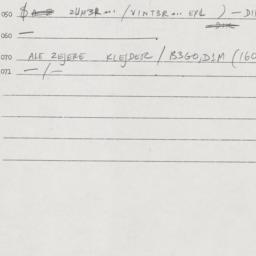 050 $ ZUNER... / VINT3R... EXL ) — DI
060 —
070 ALE ZEJERE KLEJDER / B3GO,DIM (160
071 — / —